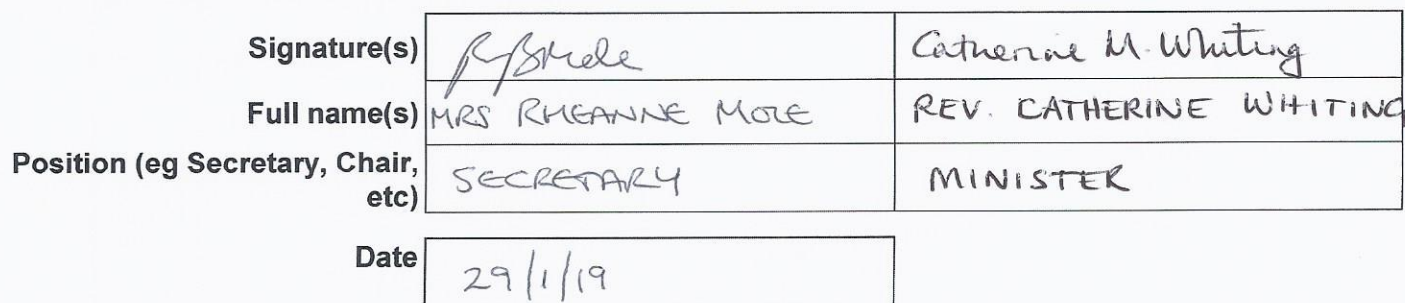 Signature(s) Catherine M. Whiting
Full name(s) MRS RHEANNE MOLE REV. CATHERINE WHITING
Position (eg Secretary, Chair, etc) SECRETARY MINISTER
Date 29/1/19